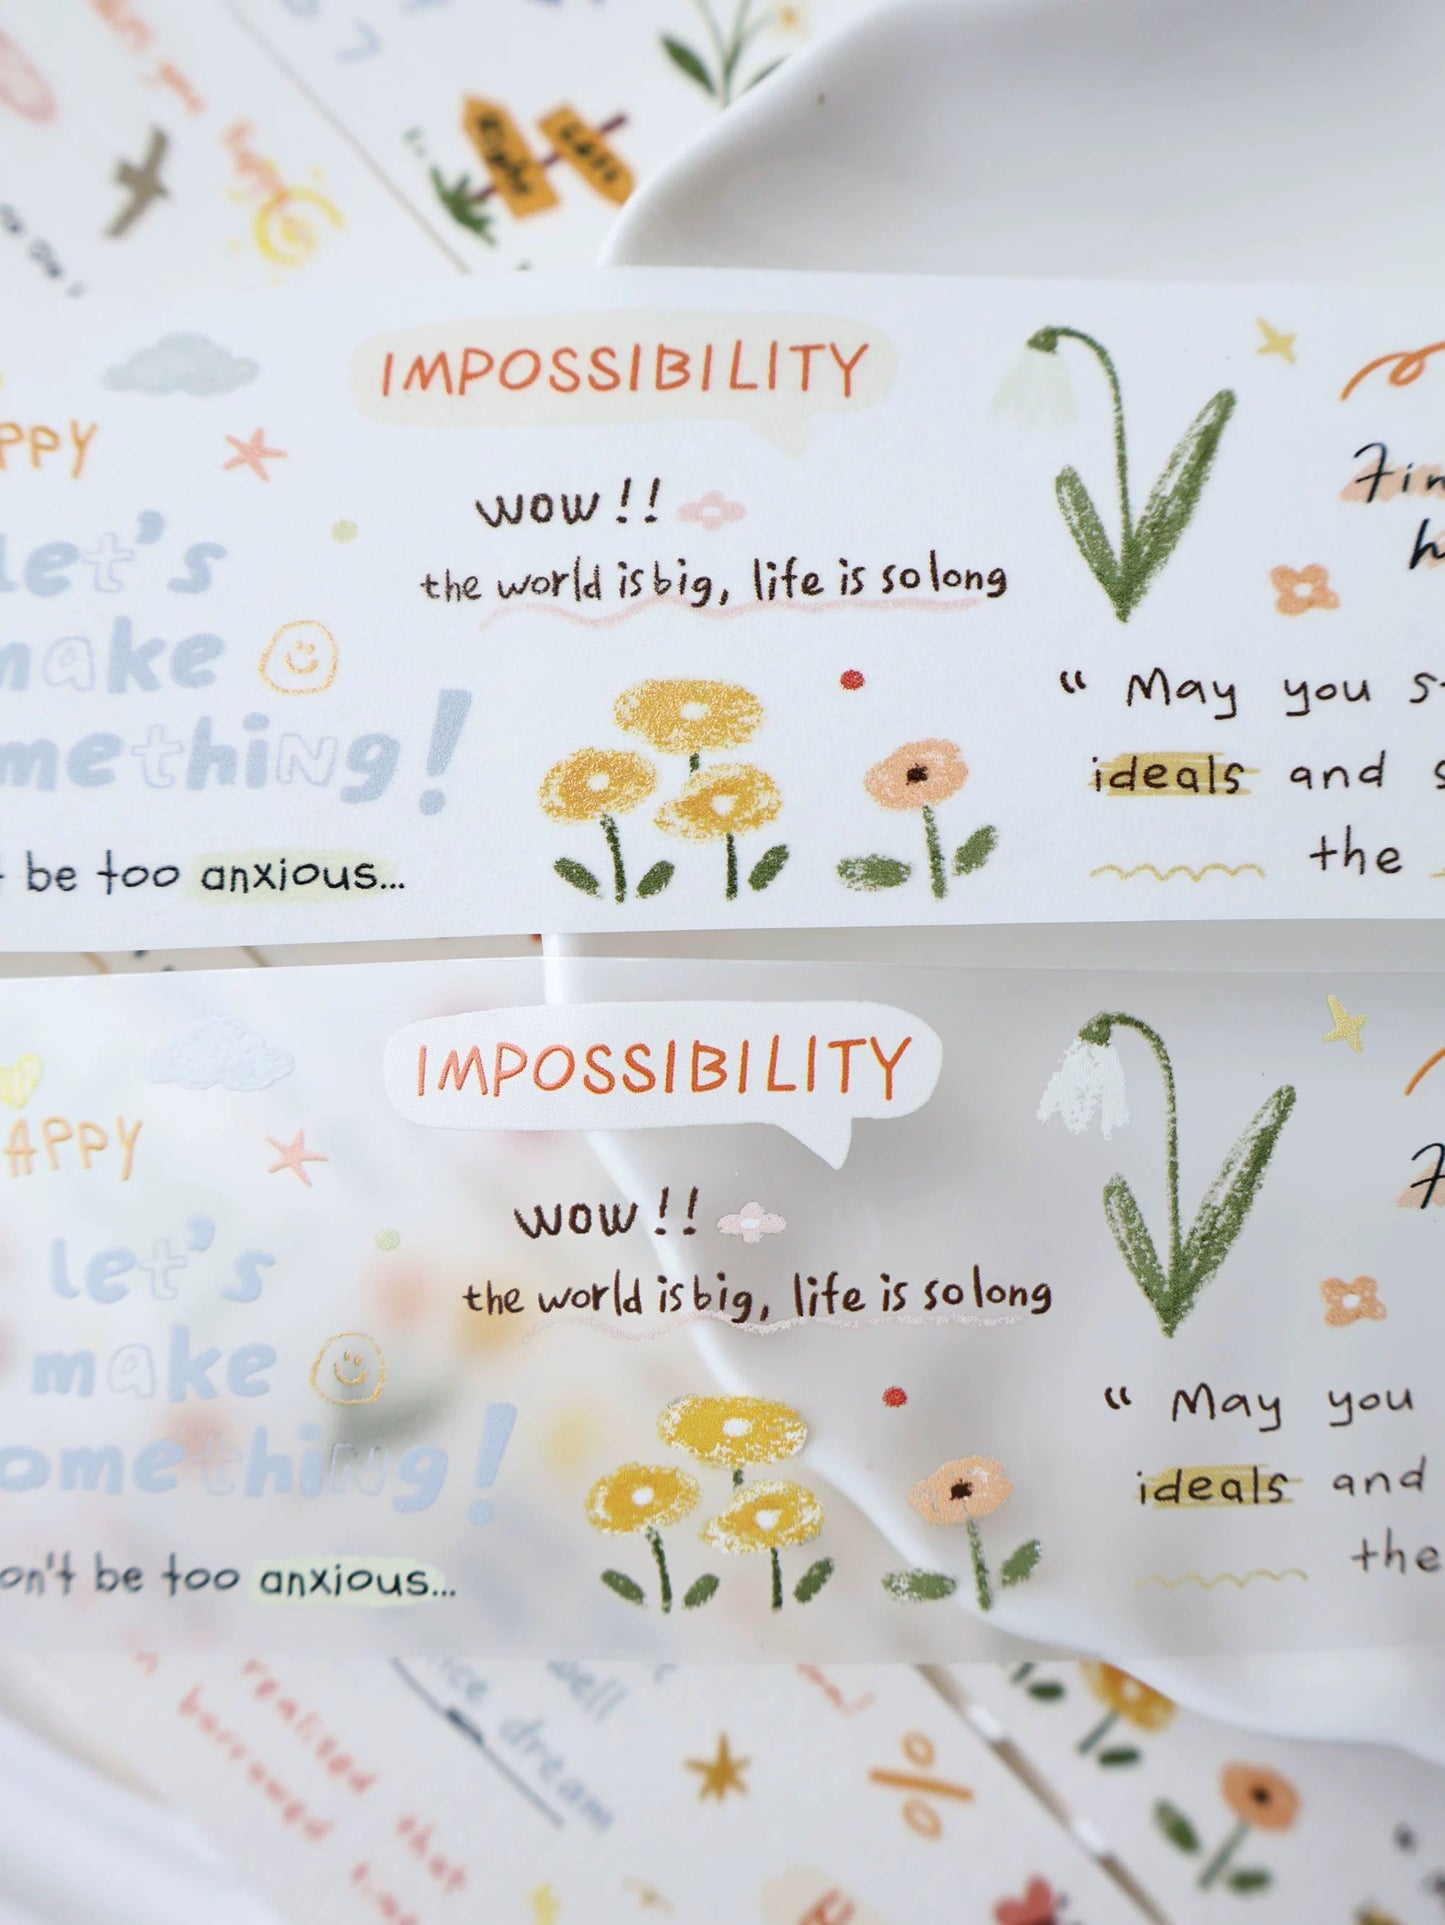 Right
Left
IMPOSSIBILITY
PPY
wow!!
let's
the world is big, life is so long
make
“ May you
mething!
ideals and
be too anxious...
the
IMPOSSIBILITY
HAPPY
wow!!
let's
the world is big, life is so long
make
“ May you
omething!
ideals and
on't be too anxious...
the
well
realized that
dream
borrowed
%